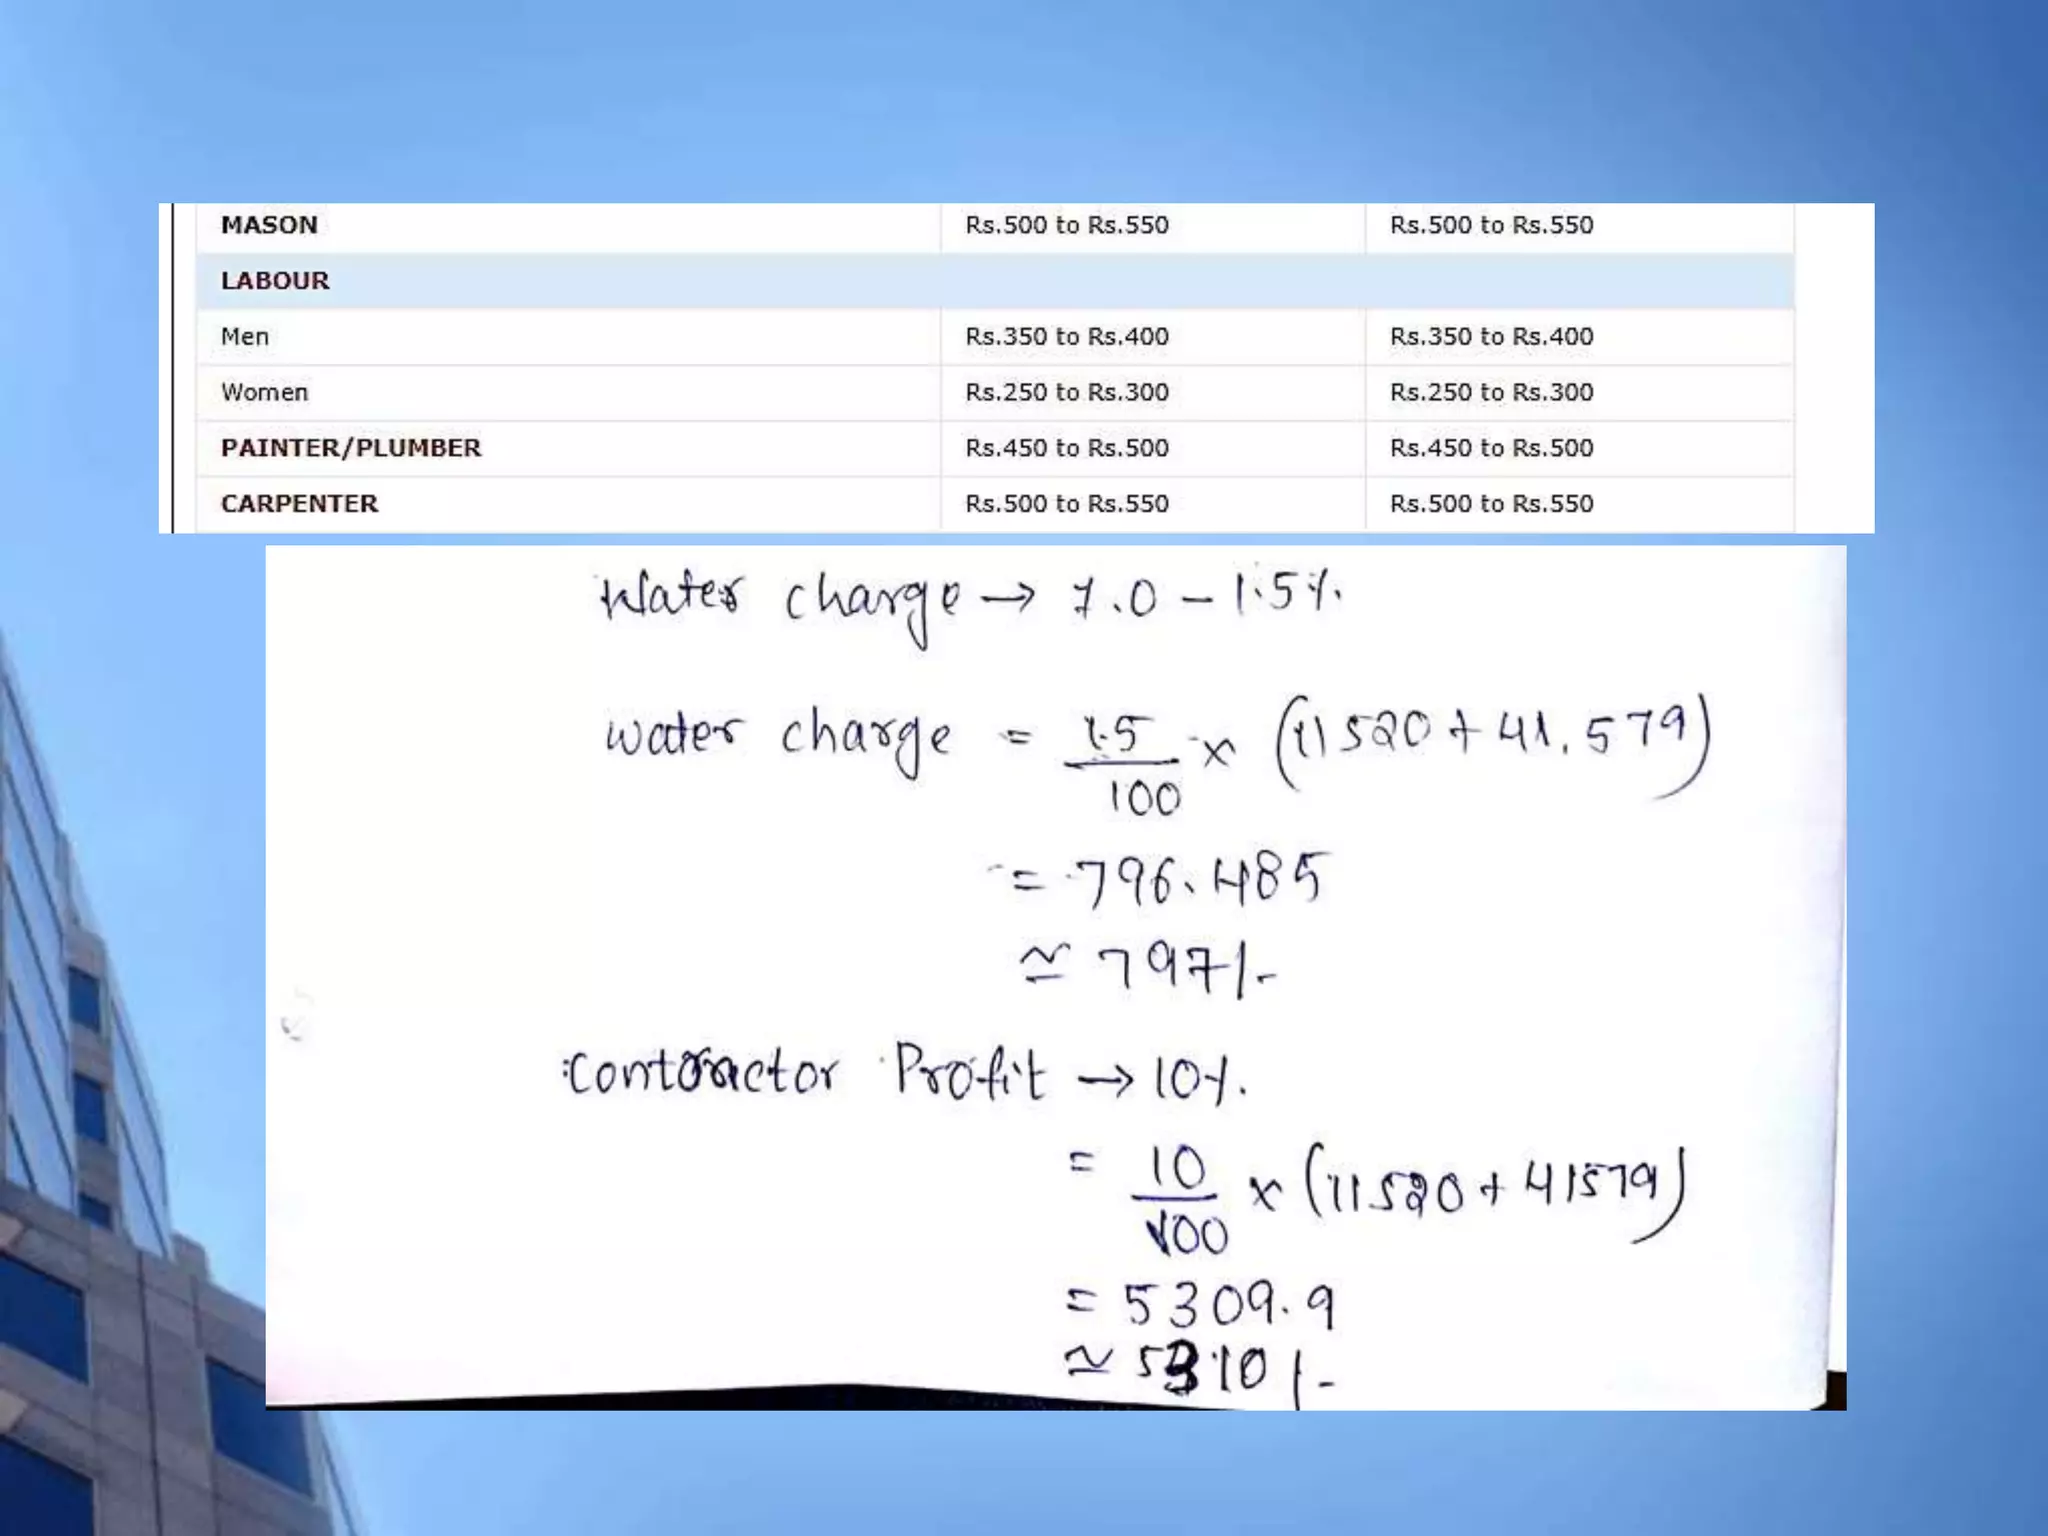 MASON Rs.500 to Rs.550 Rs.500 to Rs.550
LABOUR
Men Rs.350 to Rs.400 Rs.350 to Rs.400
Women Rs.250 to Rs.300 Rs.250 to Rs.300
PAINTER/PLUMBER Rs.450 to Rs.500 Rs.450 to Rs.500
CARPENTER Rs.500 to Rs.550 Rs.500 to Rs.550
Water charge → 1.0 - 1.5%
water charge = 1.5/100 × (11520 + 41,579)
= 796.485
≃ 797/-
Contractor Profit → 10%.
= 10/100 × (11520 + 41579)
= 5309.9
≃ 5310/-